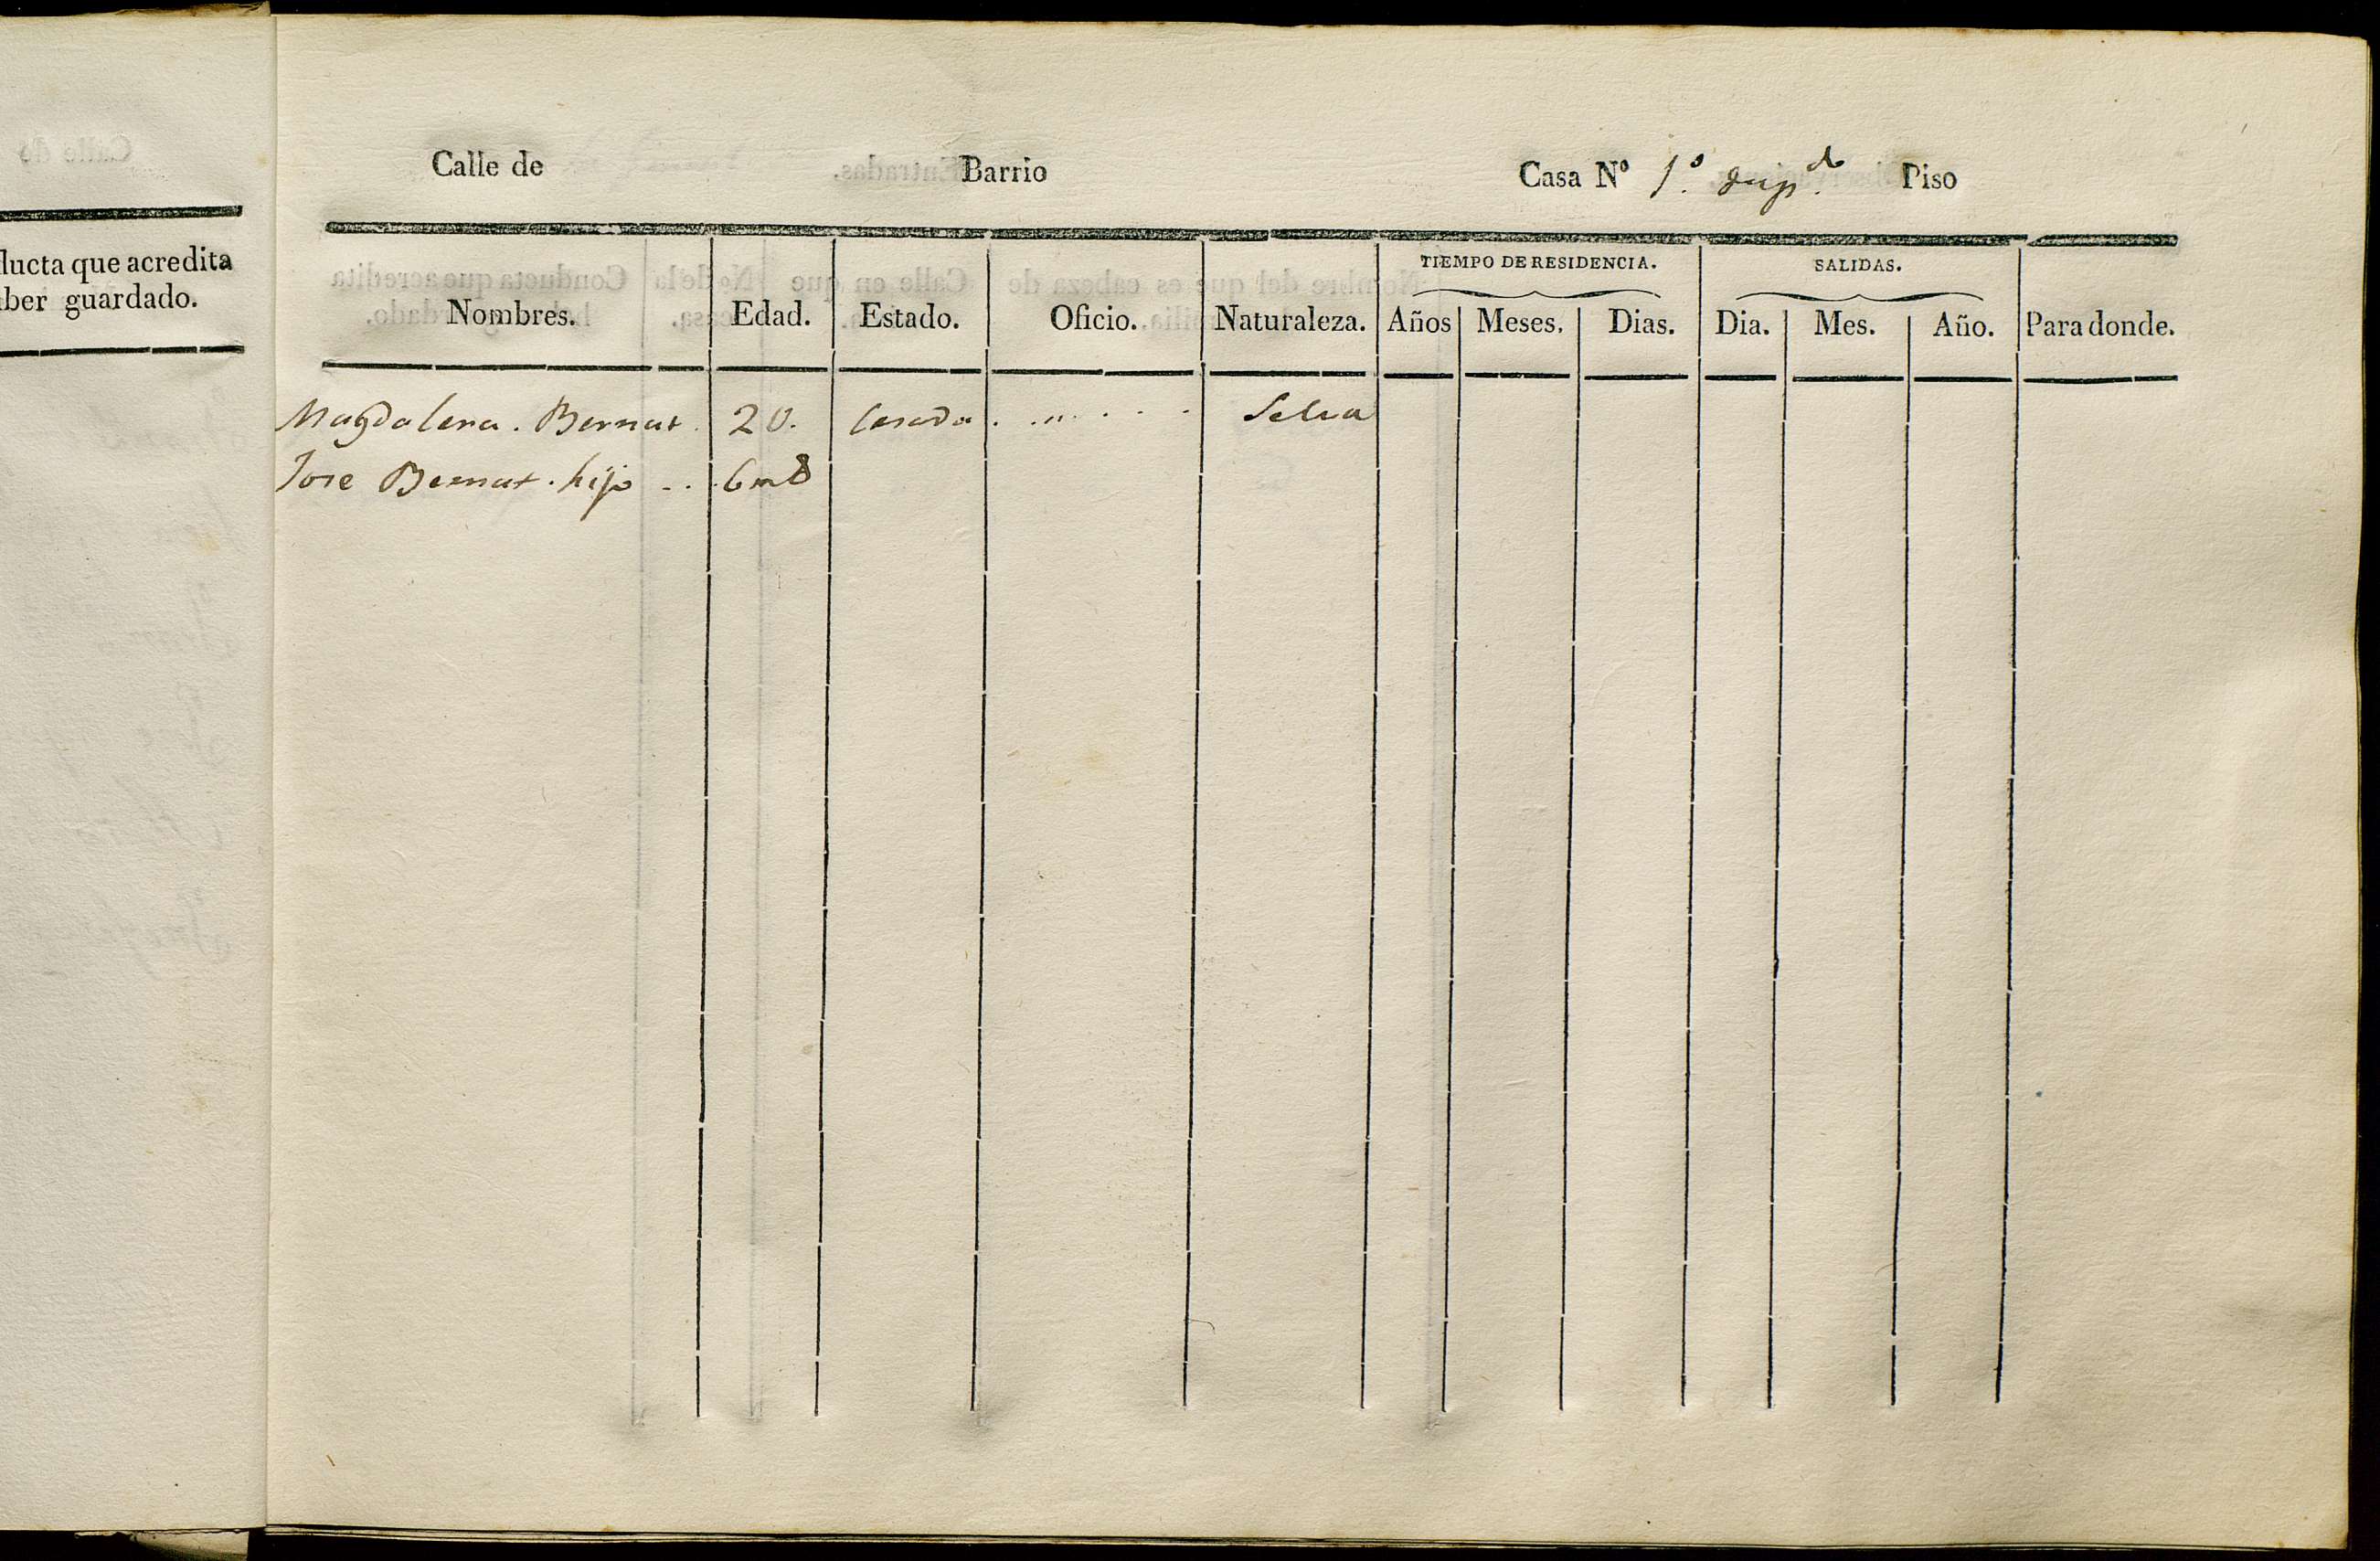 ducta que acredita
ber guardado.
Calle de Barrio Casa Nº 1.º dup.do Piso
TIEMPO DE RESIDENCIA. SALIDAS.
Nombres. Edad. Estado. Oficio. Naturaleza. Años Meses. Dias. Dia. Mes. Año. Para donde.
Magdalena. Bernat. 20. Casada . . . . . . . Selva
Jose Bernat. hijo . . . 6 ms